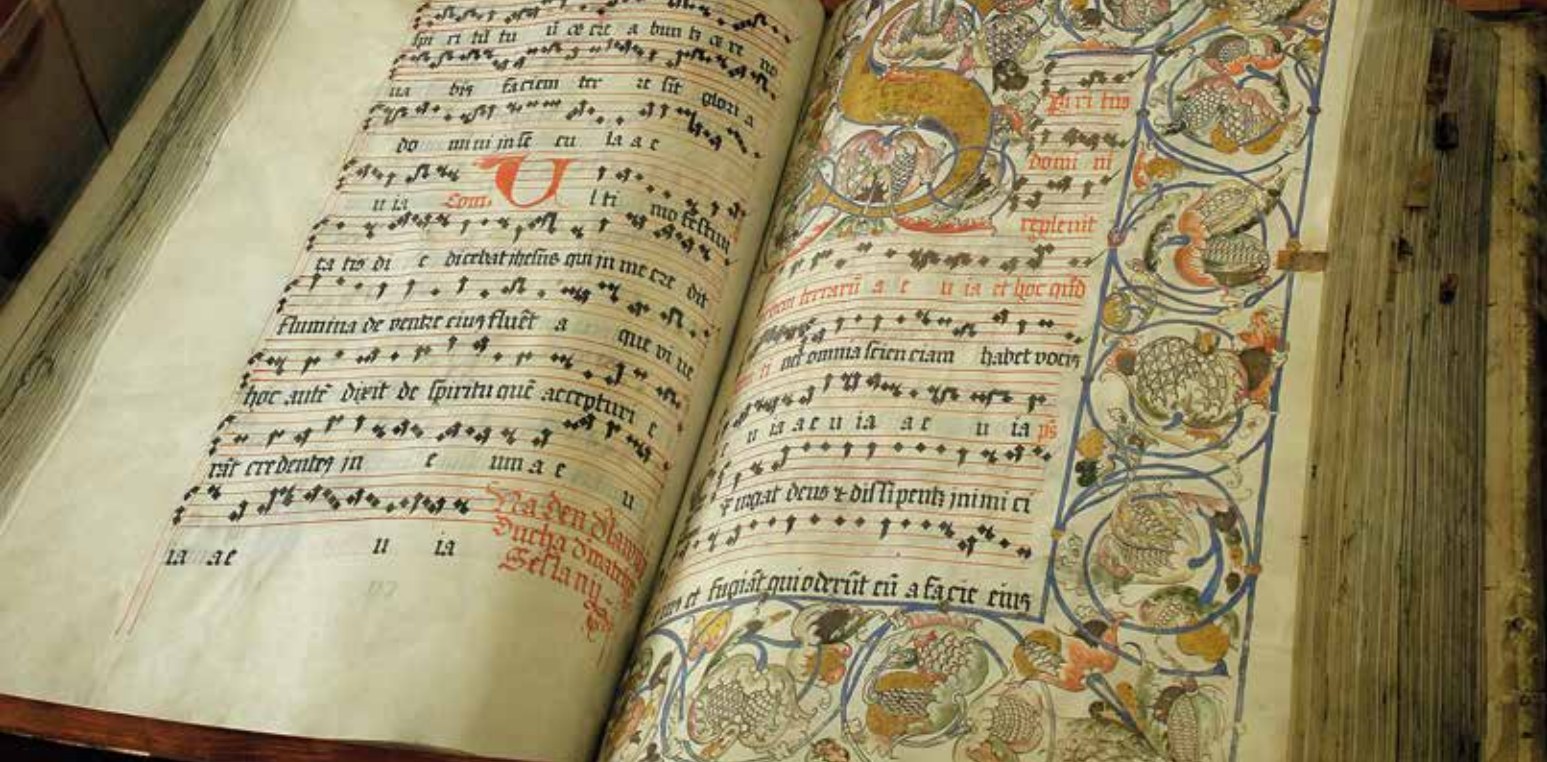 spi ri tu tu u ce cre a bun t ce re no
ua bis faciem ter re sit glori a
do mini in se cu la a e
u ia Com. U lti mo festiui
ta tis di e dicebat ihesus qui in me cre dit
flumina de ventre eius fluēt a que vi ue
hoc autē dixit de spiritu quē accepturi e
rāt credentes in e um a e u
ia ae u ia
Na den
Ducha
Seslany
S piri tus
domi ni
repleuit
orbem terrarū a e u ia et hoc quod
omnia scien ciam habet vocis
u ia a e u ia a e u ia ps
E xurgat deus ⁊ dissipentur inimi ci
eius et fugiāt qui oderūt eū a facie eius